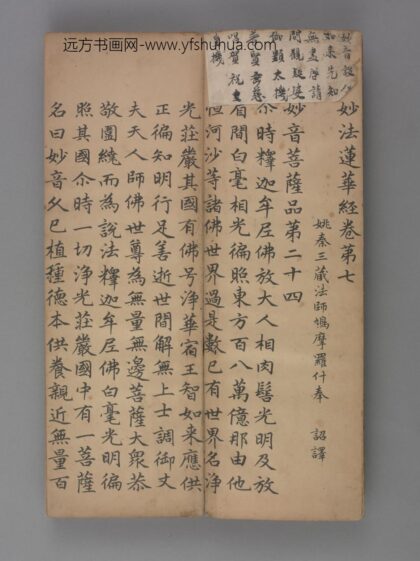 远方书画网-www.yfshuhua.com
如来先知
妙法蓮華經卷第七
姚秦三藏法師鳩摩羅什奉 詔譯
妙音菩薩品第二十四
尒時釋迦牟尼佛放大人相肉髻光明及放
眉間白毫相光徧照東方百八萬億那由他
恒河沙等諸佛世界過是數已有世界名淨
光莊嚴其國有佛号淨華宿王智如来應供
正徧知明行足善逝世間解無上士調御丈
夫天人師佛世尊為無量無邊菩薩大衆恭
敬圍繞而為說法釋迦牟尼佛白毫光明徧
照其國尒時一切淨光莊嚴國中有一菩薩
名曰妙音久已植種德本供養親近無量百